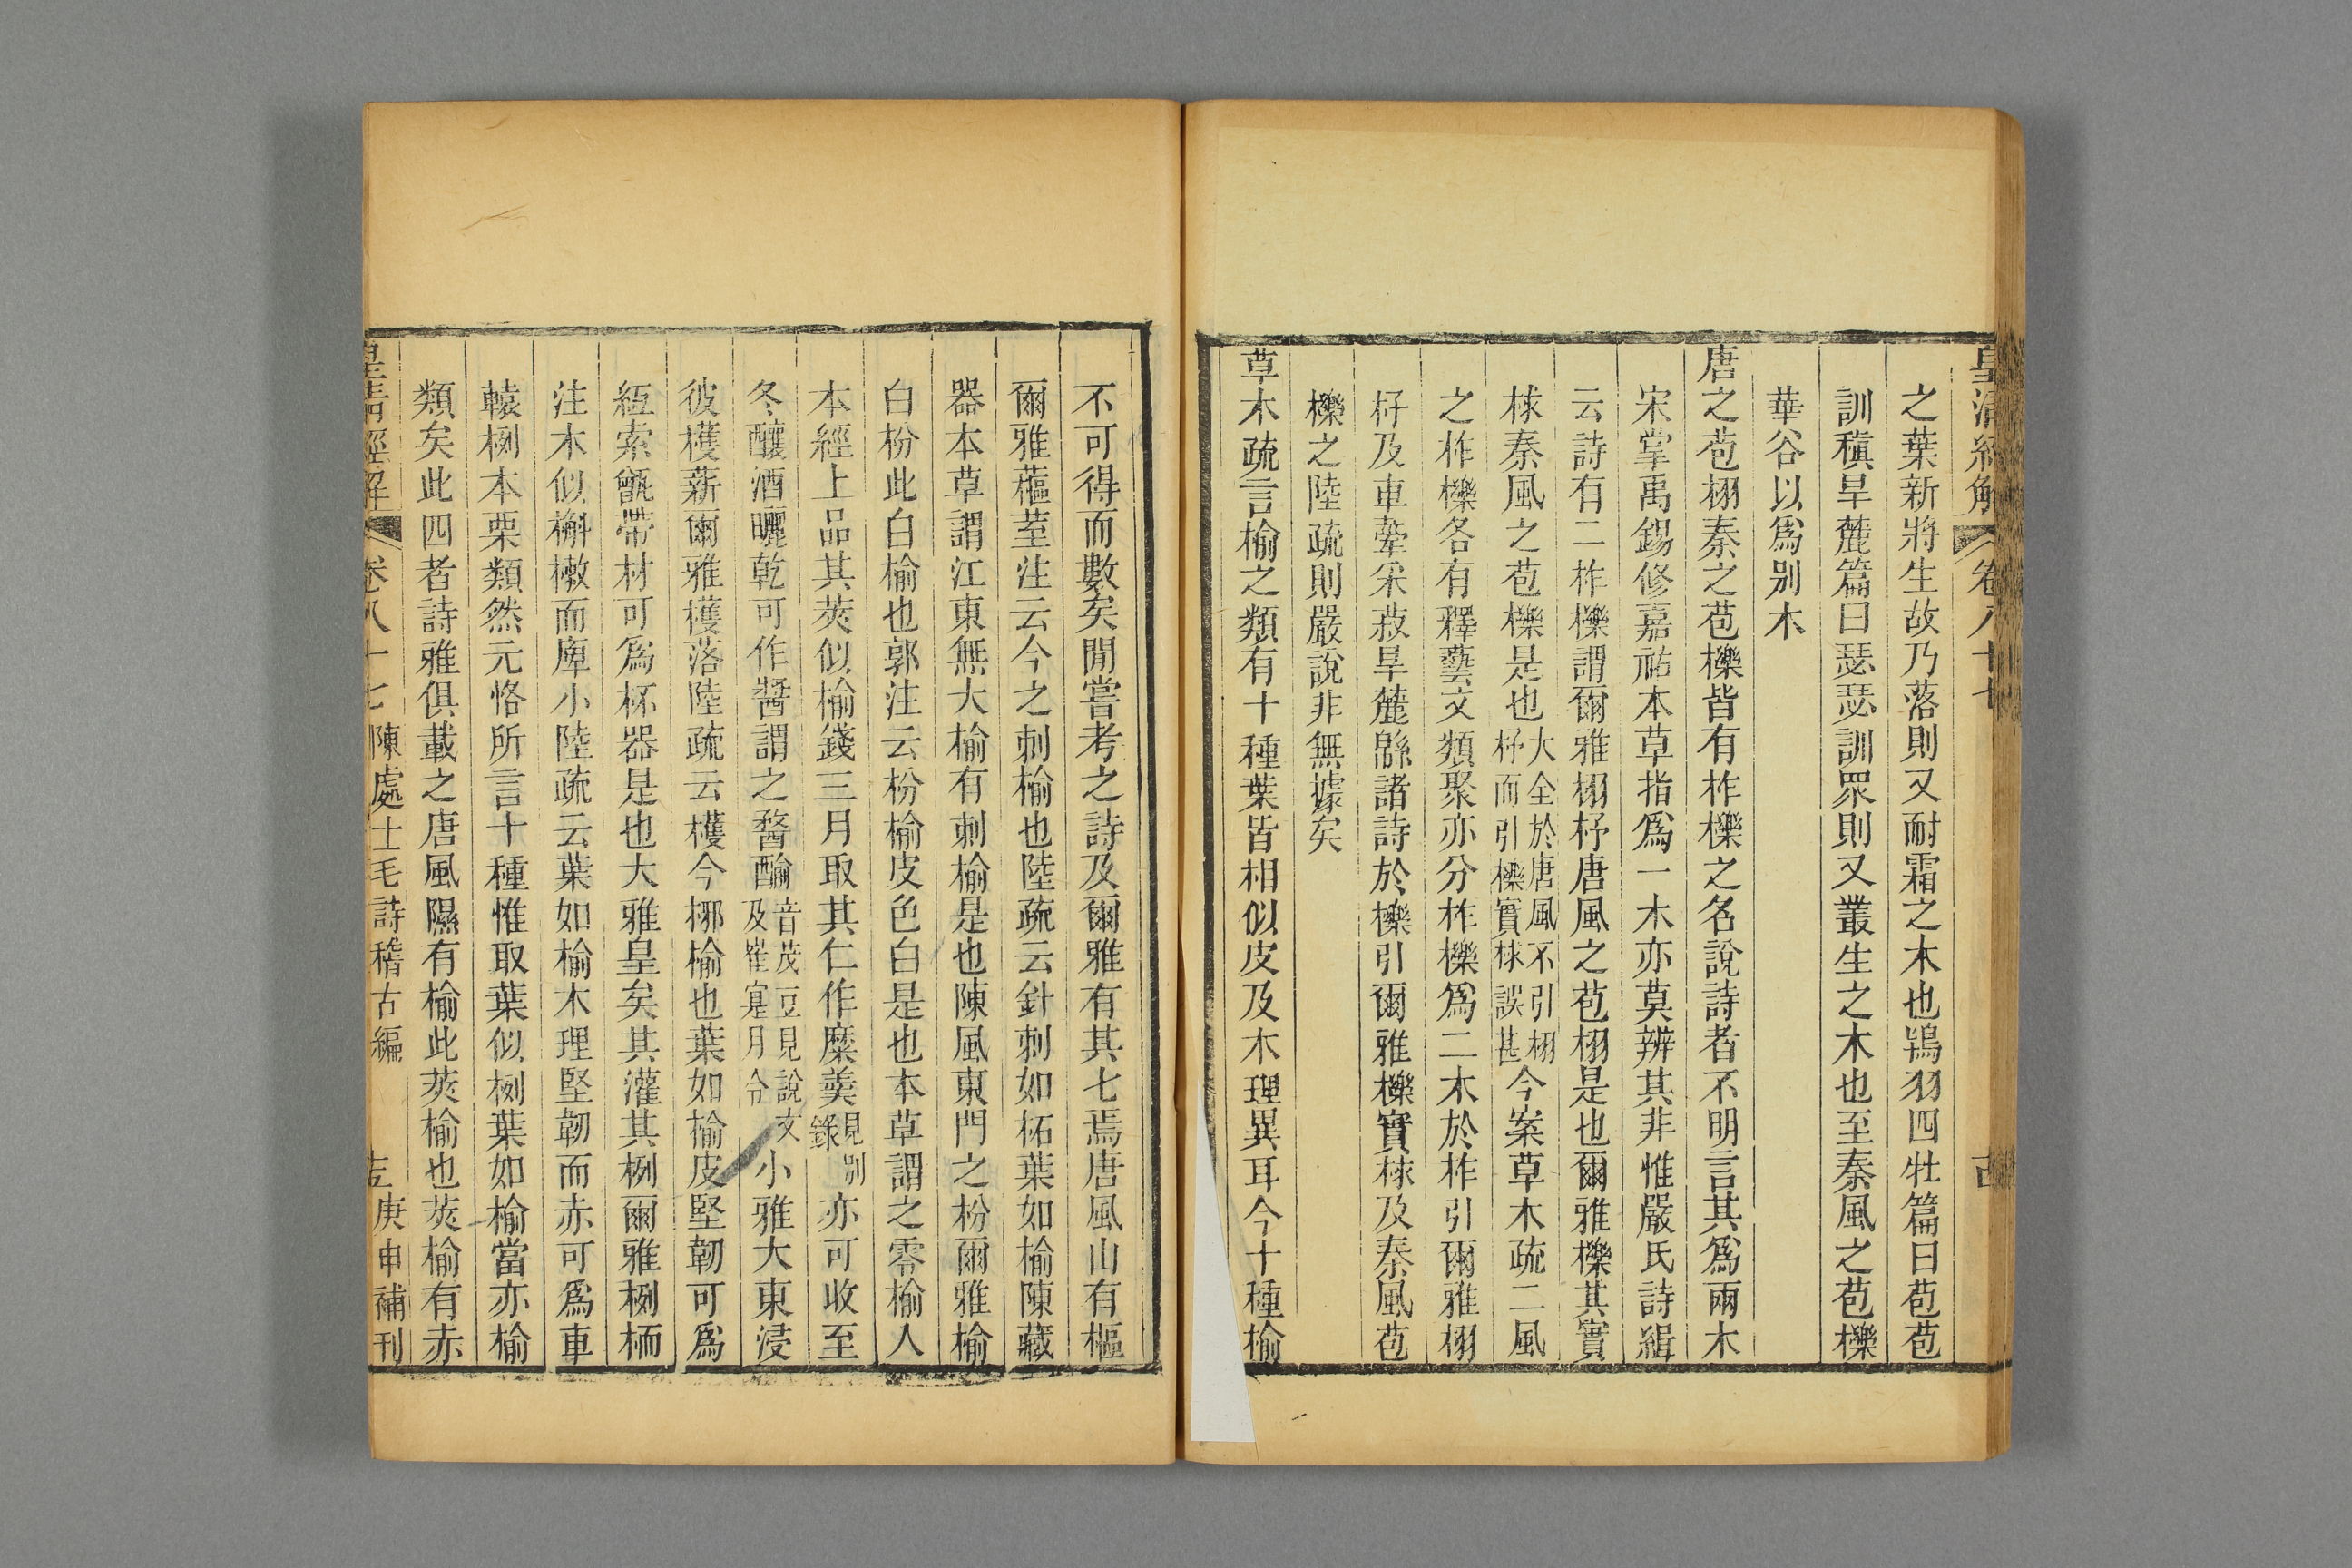 皇清經解 卷八十七
之葉新將生故乃落則又耐霜之木也鴇羽四牡篇曰苞苞
訓稹旱麓篇曰瑟瑟訓眾則又叢生之木也至秦風之苞櫟
華谷以為别木
唐之苞栩秦之苞櫟皆有柞櫟之名說詩者不明言其為兩木
宋掌禹錫修嘉祐本草指為一木亦莫辨其非惟嚴氏詩緝
云詩有二柞櫟謂爾雅栩杼唐風之苞栩是也爾雅櫟其實
梂秦風之苞櫟是也大全於唐風不引栩杼而引櫟實梂誤甚今案草木疏二風
之柞櫟各有釋藝文類聚亦分柞櫟為二木於柞引爾雅栩
杼及車舝采菽旱麓緜諸詩於櫟引爾雅櫟實梂及秦風苞
櫟之陸疏則嚴說非無據矣
草木疏言榆之類有十種葉皆相似皮及木理異耳今十種榆
不可得而數矣閒嘗考之詩及爾雅有其七焉唐風山有樞
爾雅藲荎注云今之刺榆也陸疏云針刺如柘葉如榆陳藏
器本草謂江東無大榆有刺榆是也陳風東門之枌爾雅榆
白枌此白榆也郭注云枌榆皮色白是也本草謂之零榆人
本經上品其莢似榆錢三月取其仁作糜羹見别錄亦可收至
冬釀酒曬乾可作醬謂之䱷䤅音茂豆見說文及崔寔月令小雅大東浸
彼檴薪爾雅檴落陸疏云檴今梛榆也葉如榆皮堅韌可為
絚索甑帶材可為杯器是也大雅皇矣其灌其栵爾雅栵栭
注木似槲樕而庳小陸疏云葉如榆木理堅韌而赤可為車
轅栵本栗類然元恪所言十種惟取葉似栵葉如榆當亦榆
類矣此四者詩雅俱載之唐風隰有榆此莢榆也莢榆有赤
皇清經解 卷八十七 陳處士毛詩稽古編 庚申補刊